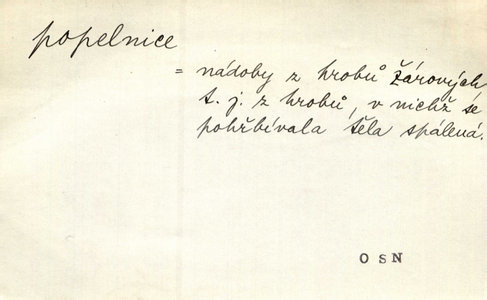 popelnice
= nádoby z hrobů žárových
t. j. z hrobů, v nichž se
pohřbívala těla spálená.
OSN